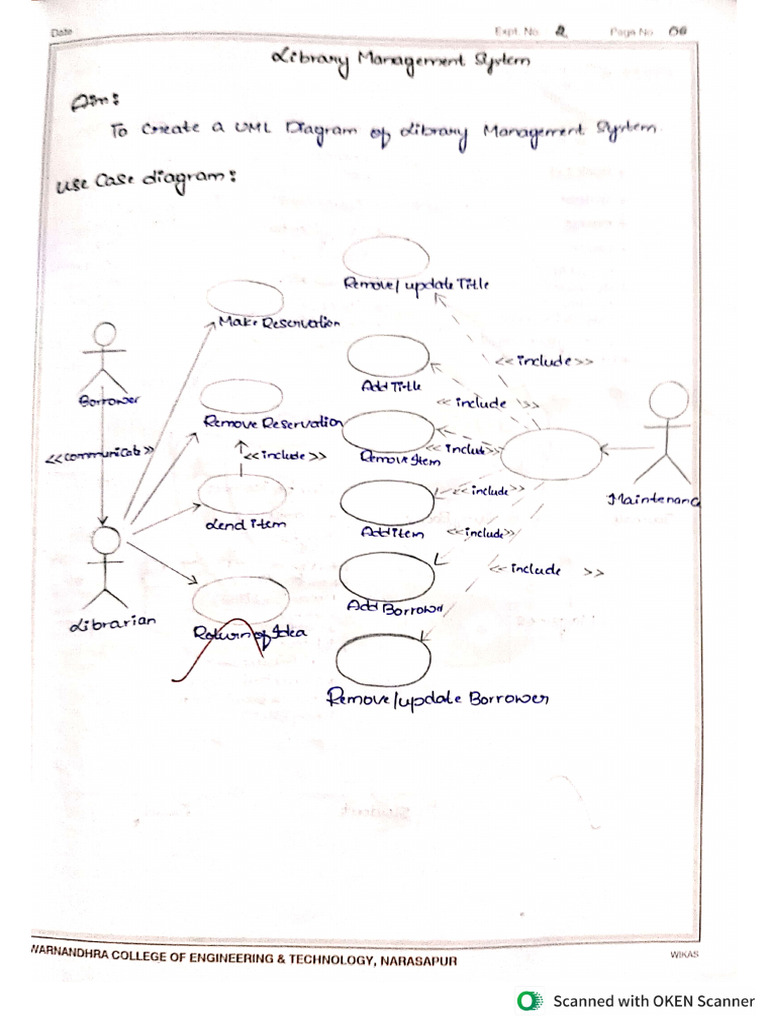 Date
Expt. No. 2
Page No. 06
Library Management System
Aim:
To Create a UML Diagram of Library Management System
Use Case diagram:
Remove/update Title
Make Reservation
<<include>>
Add Title
Borrower
<<include>>
Remove Reservation
<<communicate>>
<<include>>
Remove Item
<<include>>
<<include>>
Maintenanc
Lend item
Add item
<<include>>
<<include>>
Add Borrower
Librarian
Return of Idea
Remove/update Borrower
WARNANDHRA COLLEGE OF ENGINEERING & TECHNOLOGY, NARASAPUR
WIKAS
Scanned with OKEN Scanner